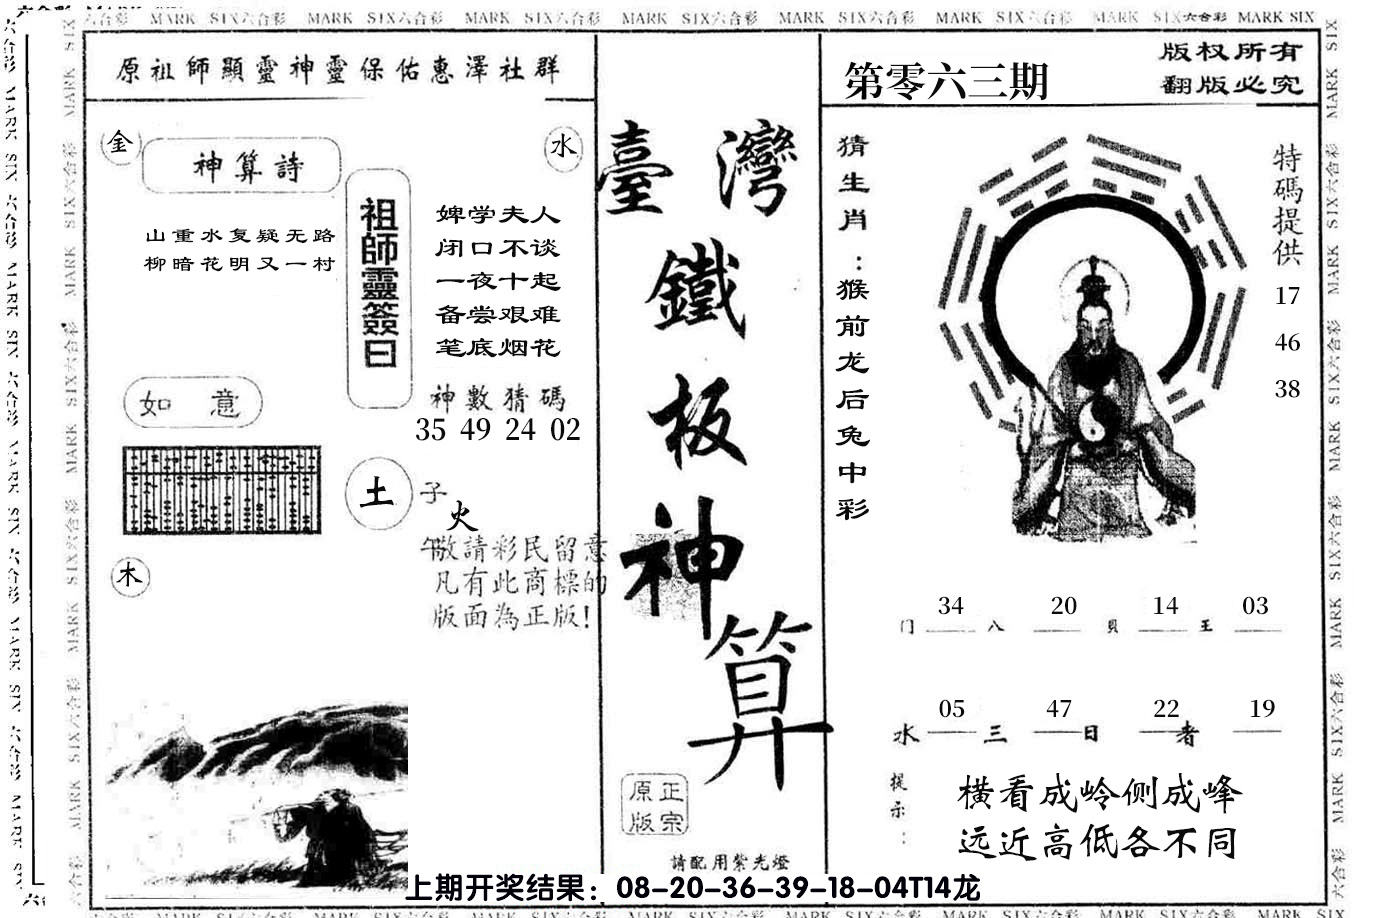 原祖師顯靈神靈保佑惠澤社群
金
神算詩
水
山重水复疑无路
柳暗花明又一村
祖師靈簽曰
婢学夫人
闭口不谈
一夜十起
备尝艰难
笔底烟花
如意
神數猜碼
35 49 24 02
土
子
火
午
敬請彩民留意
凡有此商標的
版面為正版!
木
臺灣
鐵
板
神
算
正宗
原版
請配用紫光燈
第零六三期
版权所有
翻版必究
猜生肖:猴前龙后兔中彩
特碼提供
17
46
38
34 20 14 03
门 八 貝 王
05 47 22 19
水 三 日 者
提示:
横看成岭侧成峰
远近高低各不同
上期开奖结果：08-20-36-39-18-04T14龙
MARK SIX六合彩 MARK SIX六合彩 MARK SIX六合彩 MARK SIX六合彩